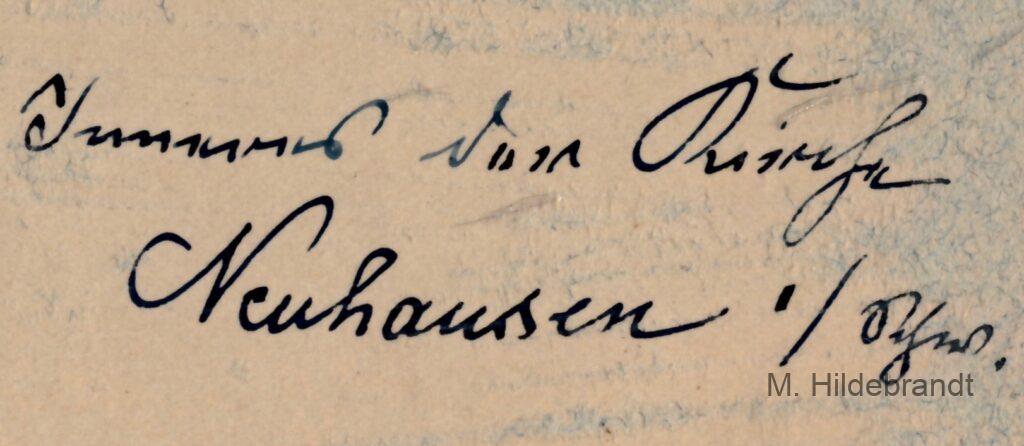 Inneres der Kirche
Neuhausen i/Schw.
M. Hildebrandt